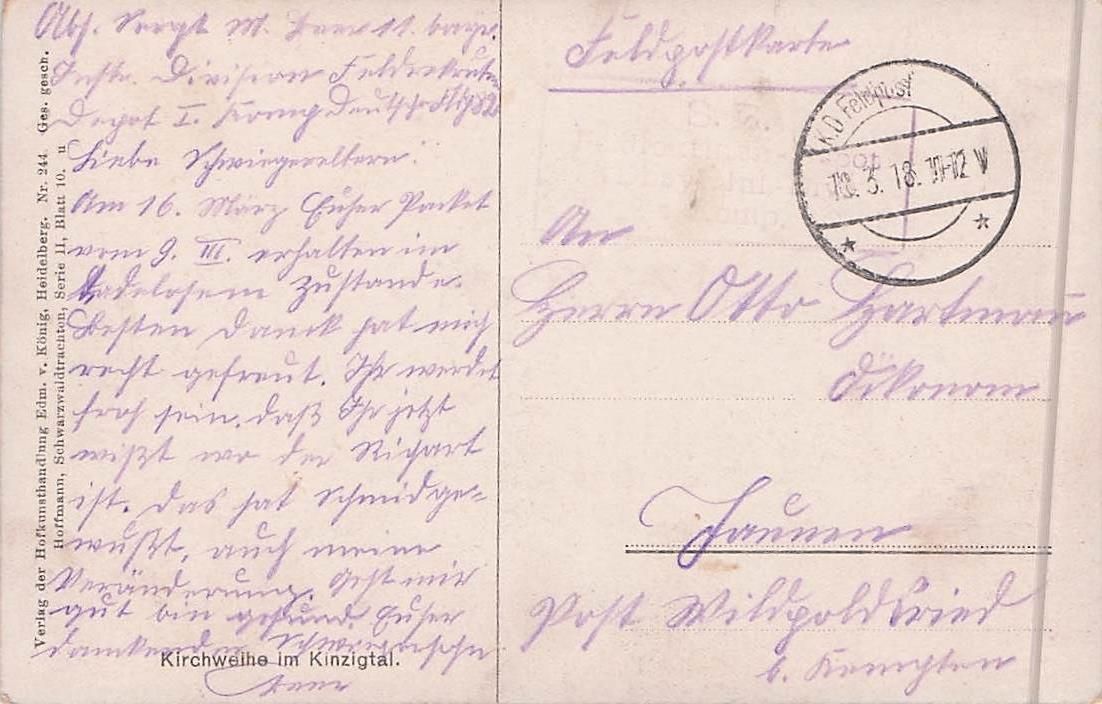 Abs. Sergt M. Beer 11. bayr.
Inftr. Division Feldrekruten
Depot I. Komp Deutsche
Liebe Schwiegereltern!
Am 16. März Euher Packet
vom 9. III. erhalten im
tadelosem Zustande.
Besten Dank hat mich
recht gefreut. Ihr werdet
froh sein, daß Ihr jetzt
wißt wo der Richart
ist. Das hat Schmid ge-
wußt, auch meine
Veränderung. Geht mir
gut bin gesund. Euher
dankender Schwiegersohn
Beer
Verlag der Hofkunsthandlung Edm. v. König, Heidelberg. Nr. 244 Ges. gesch.
Hoffmann, Schwarzwaldtrachten, Serie II, Blatt 10. u
Kirchweihe im Kinzigtal.
Feldpostkarte
K.D. Feldpost
18. 3. 18. 11-12 V
An
Herrn Otto Hartmann
Ökonom
Post Wildpoldsried
b. Kempten